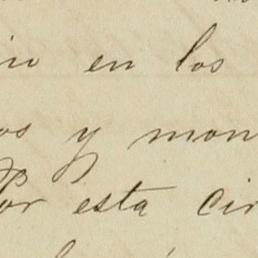 en los
os y mon
por esta cir